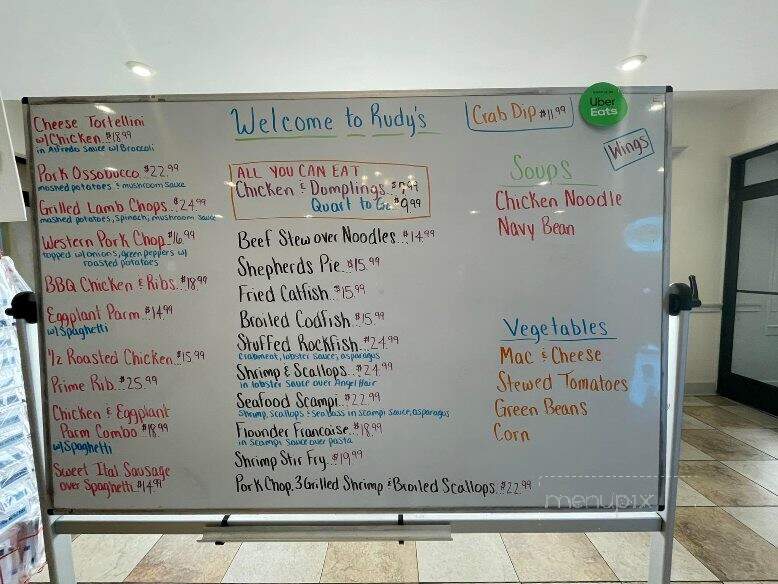 Welcome to Rudy's
Crab Dip $11.99
Uber
Eats
Wings
Cheese Tortellini
w/Chicken..$18.99
in Alfredo sauce w/Broccoli
Pork Ossobucco.$22.99
mashed potatoes & mushroom sauce
Grilled Lamb Chops.$24.99
mashed potatoes, spinach, mushroom sauce
Western Pork Chop.$16.99
topped w/onions, green peppers w/
roasted potatoes
BBQ Chicken & Ribs.$18.99
Eggplant Parm..$14.99
w/Spaghetti
1/2 Roasted Chicken.$15.99
Prime Rib..$25.99
Chicken & Eggplant
Parm Combo.$18.99
w/Spaghetti
Sweet Ital Sausage
over Spaghetti.$14.99
ALL YOU CAN EAT
Chicken & Dumplings
Quart to Go
Beef Stew over Noodles..$14.99
Shepherds Pie..$15.99
Fried Catfish..$15.99
Broiled Codfish..$15.99
Stuffed Rockfish..$24.99
Crabmeat, lobster sauce, asparagus
Shrimp & Scallops..$24.99
in lobster sauce over Angel Hair
Seafood Scampi..$22.99
Shrimp, scallops & Sea Bass in scampi sauce, asparagus
Flounder Francaise..$18.99
in scampi sauce over pasta
Shrimp Stir Fry..$19.99
Pork Chop, 3 Grilled Shrimp & Broiled Scallops..$22.99
Soups
Chicken Noodle
Navy Bean
Vegetables
Mac & Cheese
Stewed Tomatoes
Green Beans
Corn
menupix